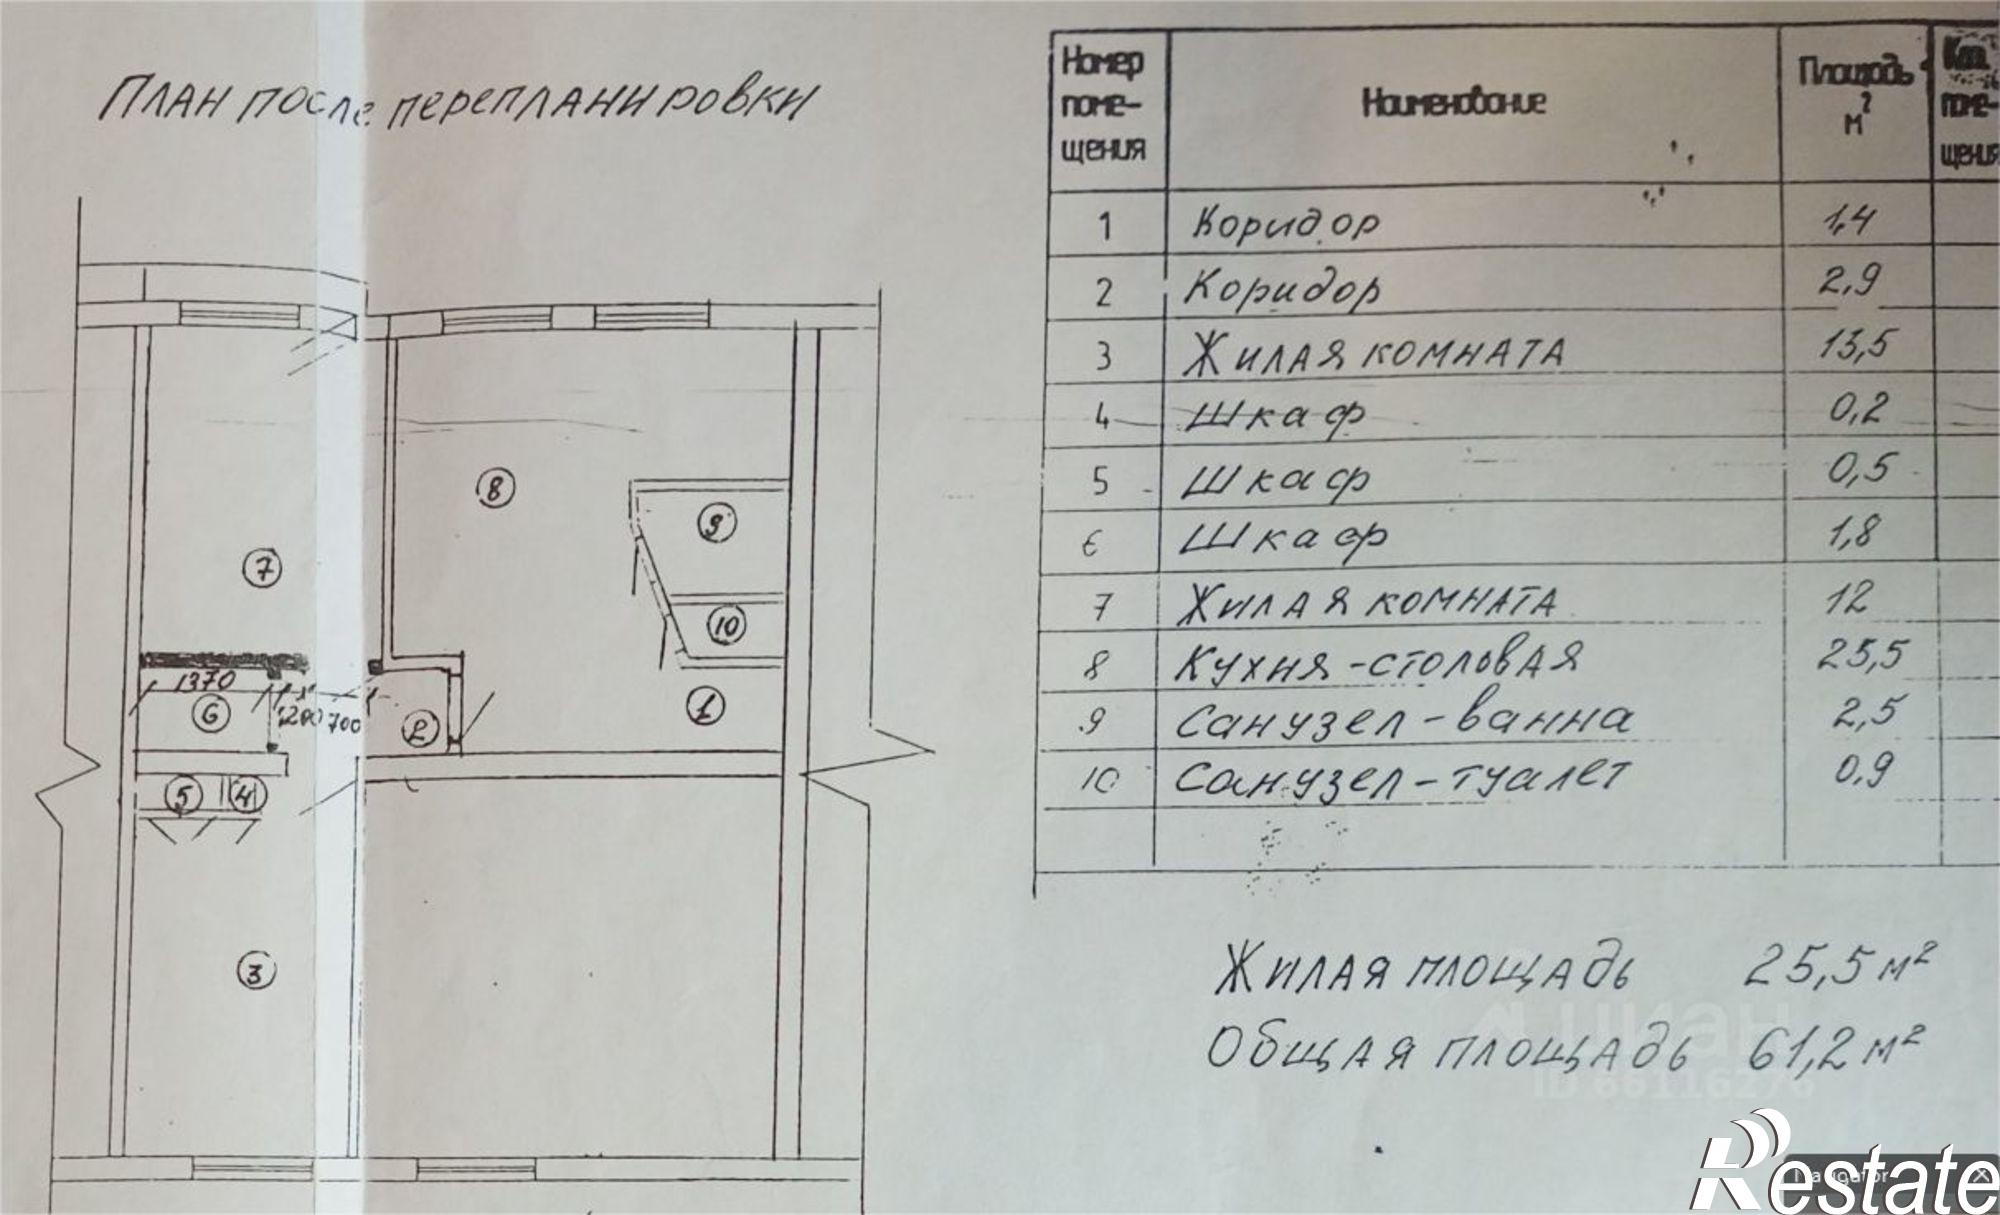 План после перепланировки
Номер помещения Наименование Площадь м² Кол. поме-щения
1 Коридор 1,4
2 Коридор 2,9
3 Жилая комната 13,5
4 Шкаф 0,2
5 Шкаф 0,5
6 Шкаф 1,8
7 Жилая комната 12
8 Кухня-столовая 25,5
9 Санузел-ванна 2,5
10 Санузел-туалет 0,9
Жилая площадь 25,5 м²
Общая площадь 61,2 м²
8
9
7
10
1370
6
1200 700
2
1
5 4
3
циан
Restate
Navigator